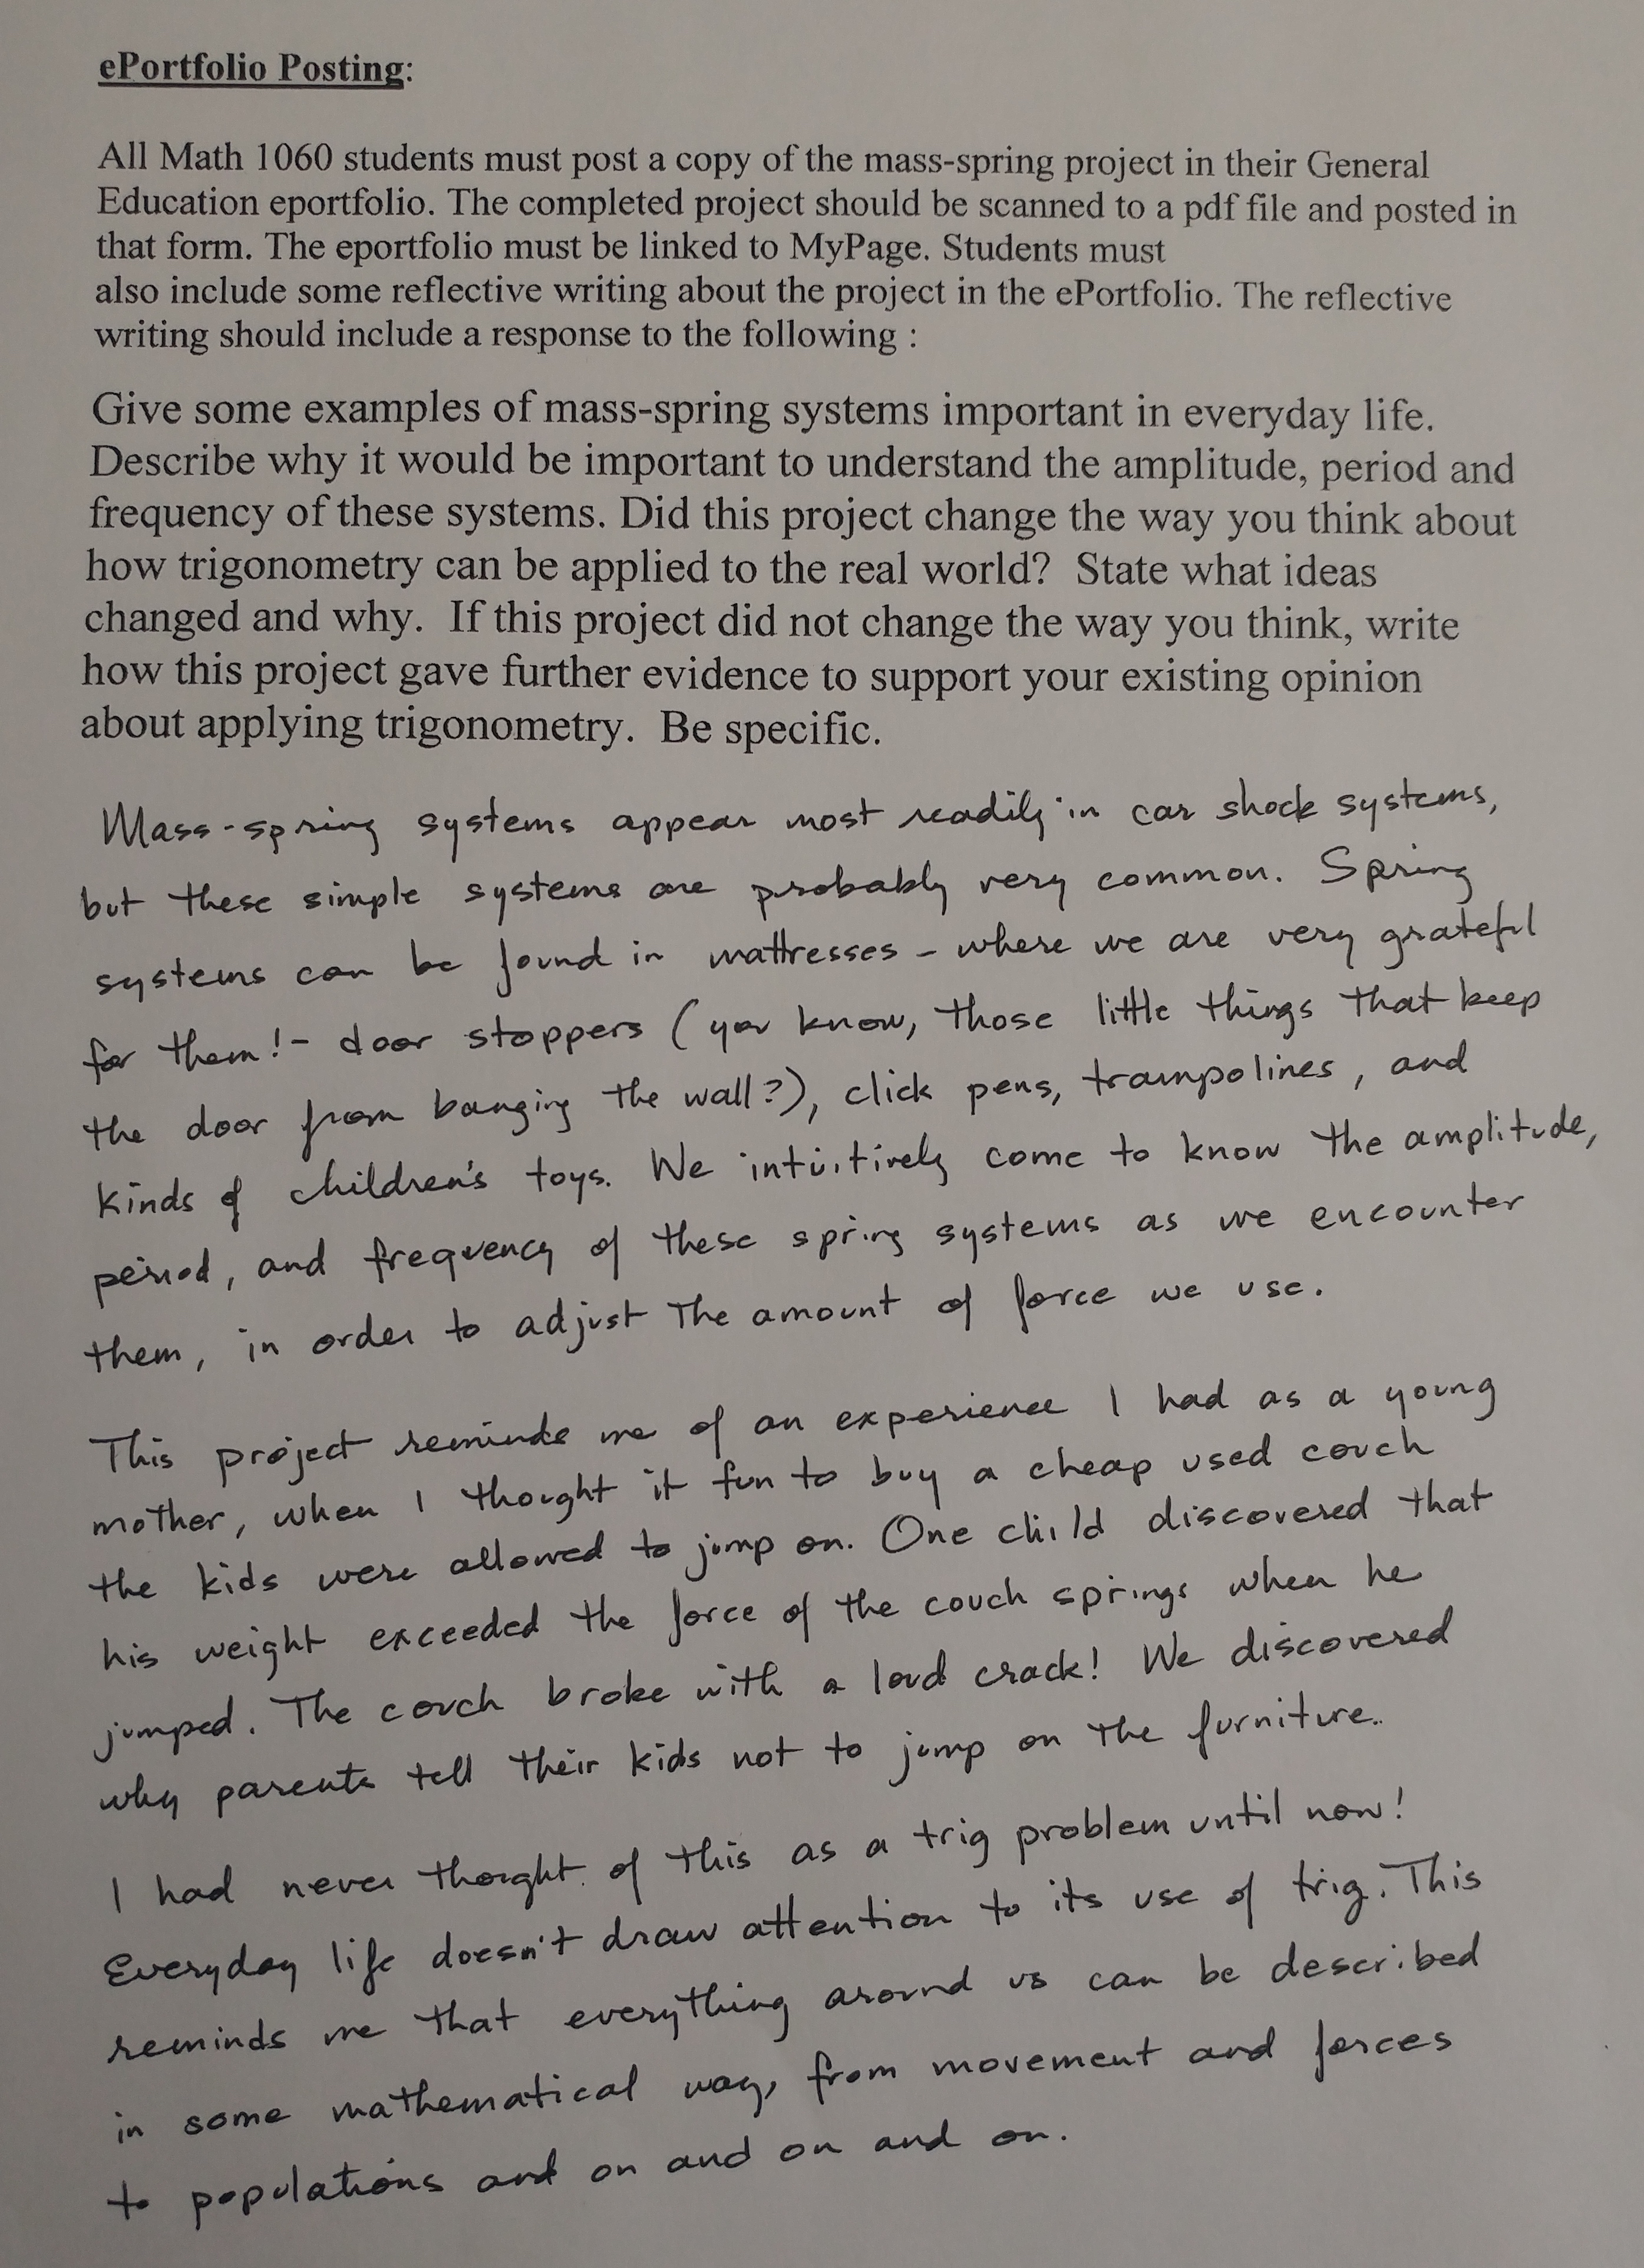 ePortfolio Posting:
All Math 1060 students must post a copy of the mass-spring project in their General
Education eportfolio. The completed project should be scanned to a pdf file and posted in
that form. The eportfolio must be linked to MyPage. Students must
also include some reflective writing about the project in the ePortfolio. The reflective
writing should include a response to the following :
Give some examples of mass-spring systems important in everyday life.
Describe why it would be important to understand the amplitude, period and
frequency of these systems. Did this project change the way you think about
how trigonometry can be applied to the real world? State what ideas
changed and why. If this project did not change the way you think, write
how this project gave further evidence to support your existing opinion
about applying trigonometry. Be specific.
Mass-spring systems appear most readily in car shock systems,
but these simple systems are probably very common. Spring
systems can be found in mattresses - where we are very grateful
for them! - door stoppers (you know, those little things that keep
the door from banging the wall?), click pens, trampolines, and
kinds of children's toys. We intuitively come to know the amplitude,
period, and frequency of these spring systems as we encounter
them, in order to adjust the amount of force we use.
This project reminds me of an experience I had as a young
mother, when I thought it fun to buy a cheap used couch
the kids were allowed to jump on. One child discovered that
his weight exceeded the force of the couch springs when he
jumped. The couch broke with a loud crack! We discovered
why parents tell their kids not to jump on the furniture.
I had never thought of this as a trig problem until now!
Everyday life doesn't draw attention to its use of trig. This
reminds me that everything around us can be described
in some mathematical way, from movement and forces
to populations and on and on and on.